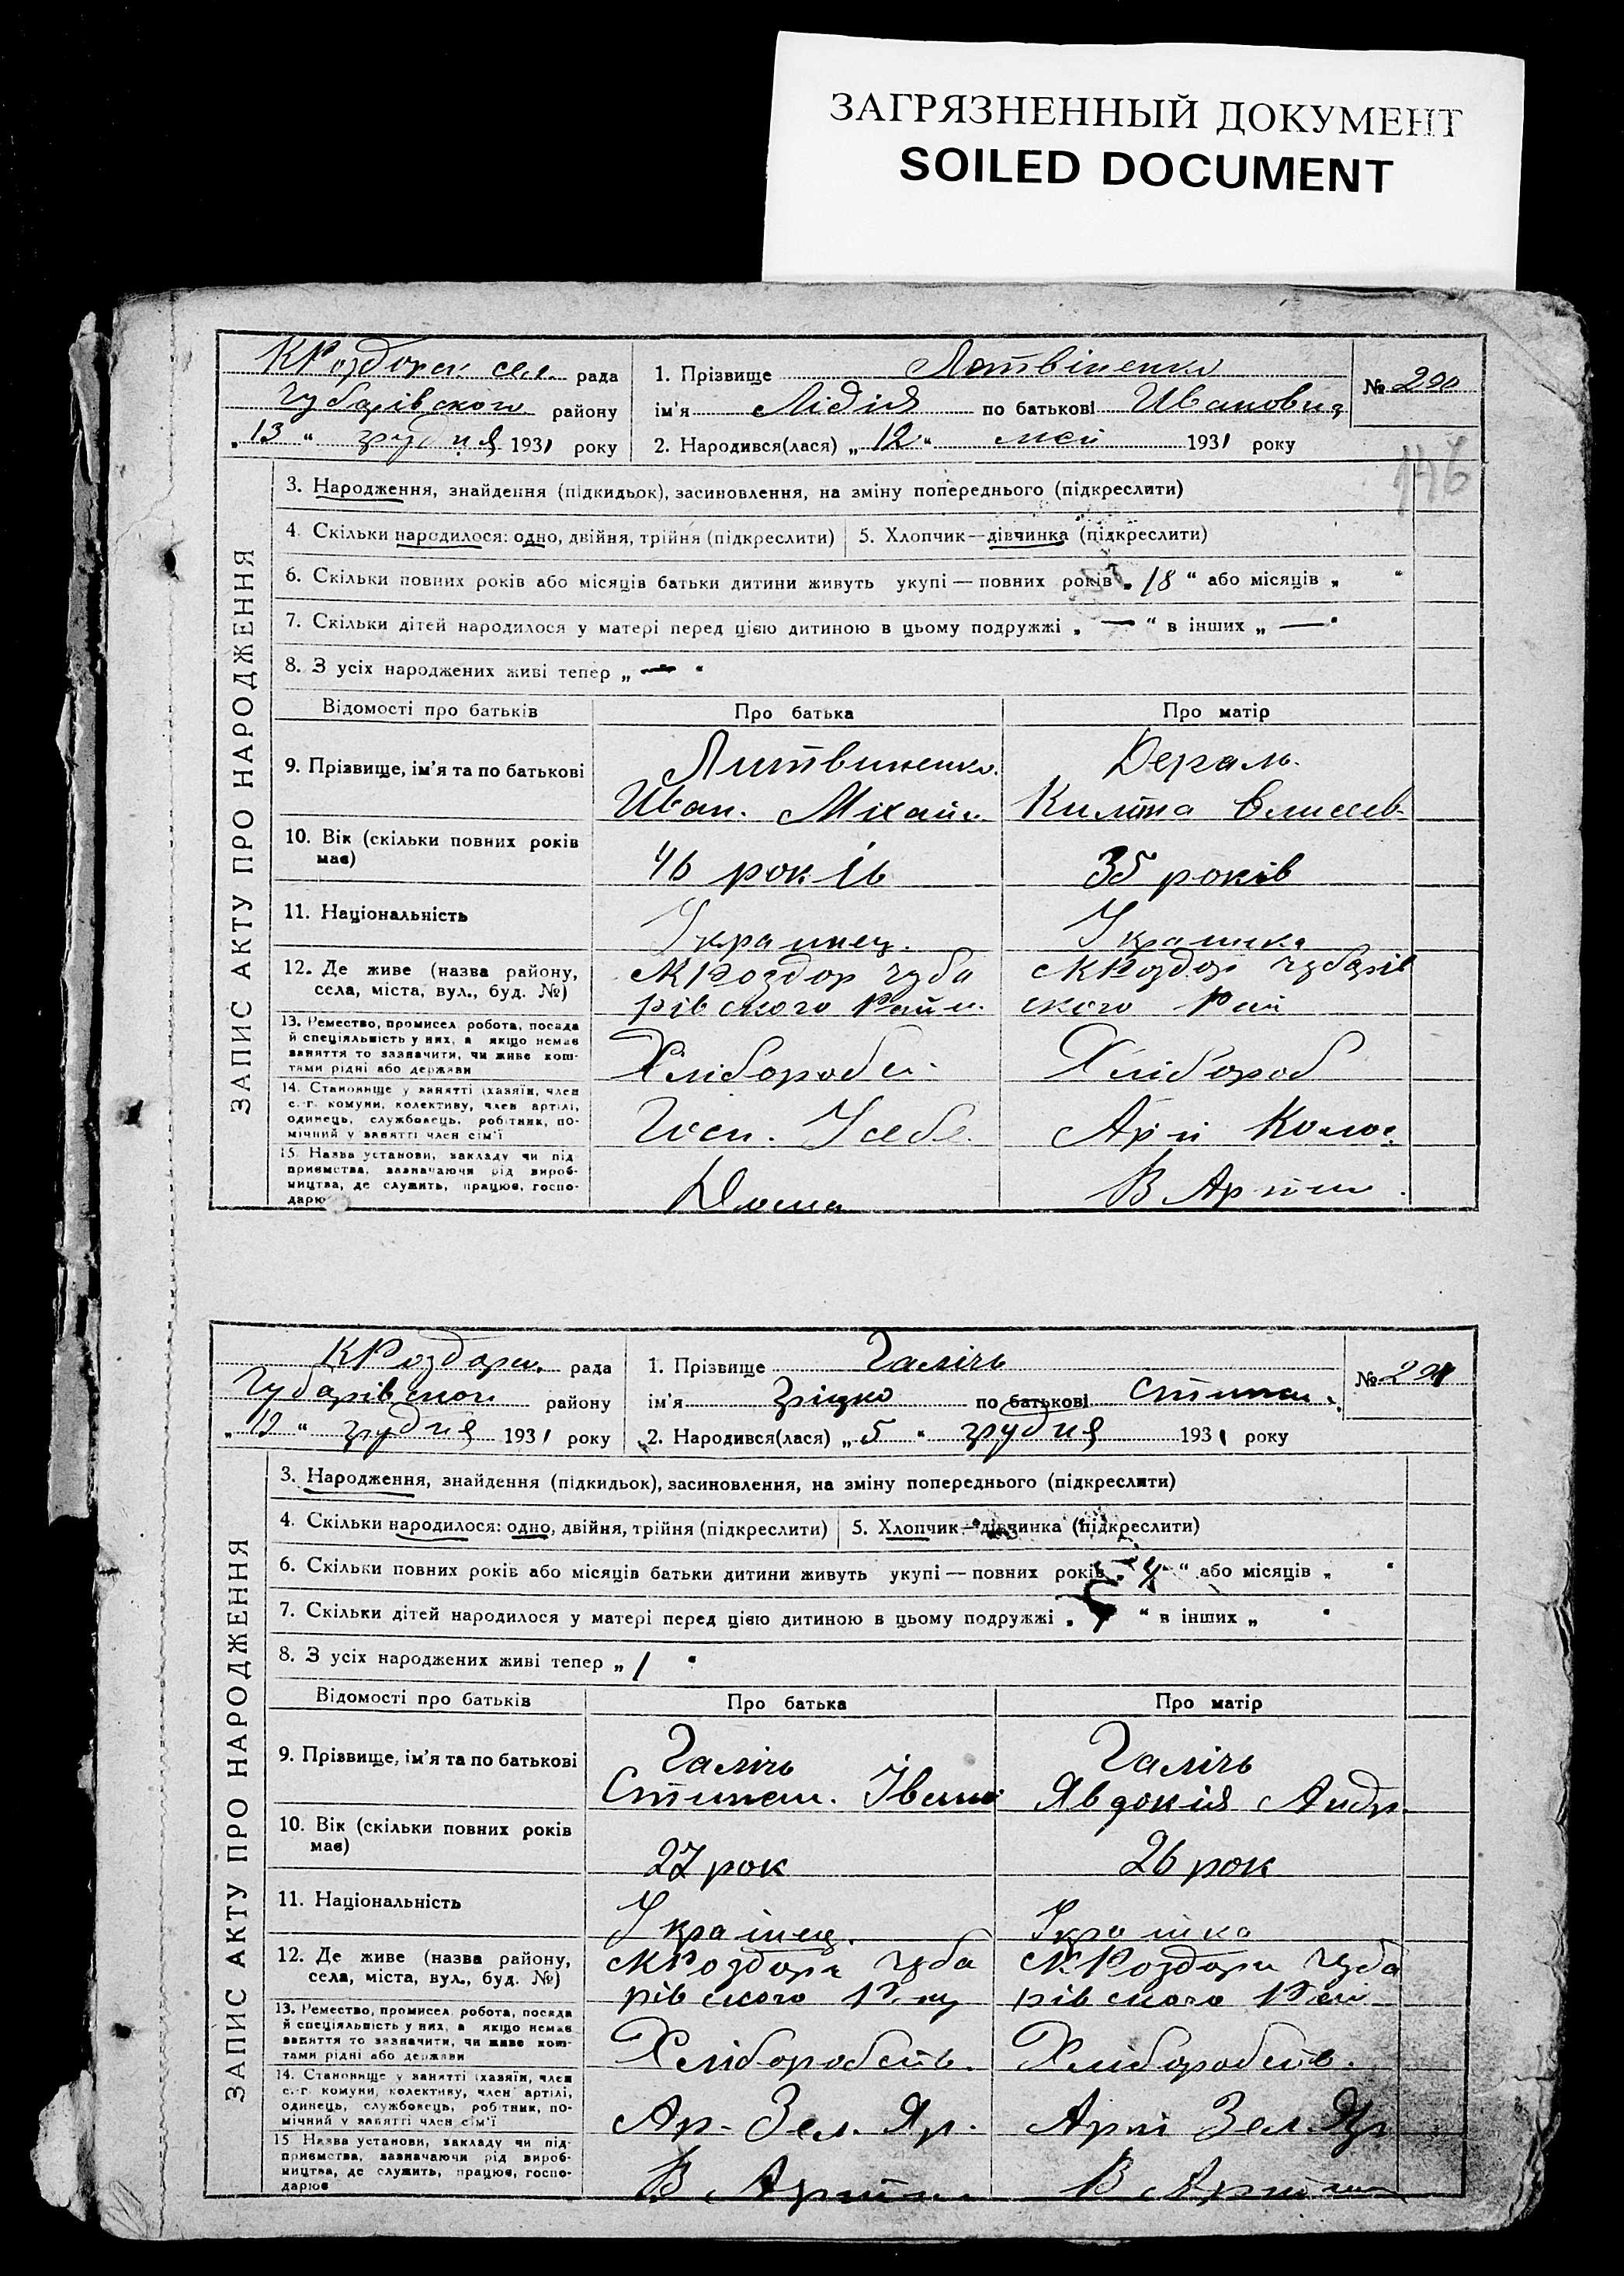 ЗАГРЯЗНЕННЫЙ ДОКУМЕНТ
SOILED DOCUMENT
рада
1. Прізвище Литвіненко
№ 290
Чубарівского району
ім'я Лідія по батькові Ивановна
„13“ грудня 1931 року
2. Народився(лася) „12“ 1931 року
146
ЗАПИС АКТУ ПРО НАРОДЖЕННЯ
3. Народження, знайдення (підкидьок), засиновлення, на зміну попереднього (підкреслити)
4. Скільки народилося: одно, двійня, трійня (підкреслити)
5. Хлопчик—дівчинка (підкреслити)
6. Скільки повних років або місяців батьки дитини живуть укупі — повних років „18“ або місяців „ “
7. Скільки дітей народилося у матері перед цією дитиною в цьому подружжі „—“ в інших „—“
8. З усіх народжених живі тепер „—“
Відомості про батьків
Про батька
Про матір
9. Прізвище, ім'я та по батькові
Литвиненко.
Иван. Михайл.
10. Вік (скільки повних років
має)
46 років
35 років
11. Національність
Украинец.
Украинка
12. Де живе (назва району,
села, міста, вул., буд. №)
КРоздор Чуба
рівского Район.
КРоздор Чубарів
ского Рай
13. Ремество, промисел, робота, посада
й спеціяльність у них, а якщо немає
заняття то зазначити, чи живе кош-
тами рідні або держави
Хлібороб
14. Становище у занятті (хазяїн, член
с.-г. комуни, колективу, член артілі,
одинець, службовець, робітник, по-
мічний у занятті член сім'ї
15. Назва установи, закладу чи під-
приємства, зазначаючи рід вироб-
ництва, де служить, працює, госпо-
дарює
Дома
В Артили.
рада
1. Прізвище Галічь
№ 291
Чубарівског району
ім'я Гріцко по батькові Степан.
грудня 1931 року
2. Народився(лася) „5“ грудня 1931 року
ЗАПИС АКТУ ПРО НАРОДЖЕННЯ
3. Народження, знайдення (підкидьок), засиновлення, на зміну попереднього (підкреслити)
4. Скільки народилося: одно, двійня, трійня (підкреслити)
5. Хлопчик—дівчинка (підкреслити)
6. Скільки повних років або місяців батьки дитини живуть укупі — повних років „4“ або місяців „ “
7. Скільки дітей народилося у матері перед цією дитиною в цьому подружжі „ “ в інших „ “
8. З усіх народжених живі тепер „1“
Відомості про батьків
Про батька
Про матір
9. Прізвище, ім'я та по батькові
Галічь
Степан. Іван
Галічь
Явдокія Андр.
10. Вік (скільки повних років
має)
27 рок
26 рок
11. Національність
Украінец.
Украінка
12. Де живе (назва району,
села, міста, вул., буд. №)
КРоздори Чуба
рівского
КРоздори Чуба
рівского Рай
13. Ремество, промисел, робота, посада
й спеціяльність у них, а якщо немає
заняття то зазначити, чи живе кош-
тами рідні або держави
Хліборобств.
Хліборобств.
14. Становище у занятті (хазяїн, член
с.-г. комуни, колективу, член артілі,
одинець, службовець, робітник, по-
мічний у занятті член сім'ї
Ар. Зел. Яр.
Арт Зел Яр
15. Назва установи, закладу чи під-
приємства, зазначаючи рід вироб-
ництва, де служить, працює, госпо-
дарює
В Артили
В Артили